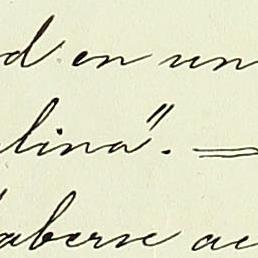 d en un
lina". =
aberse ac